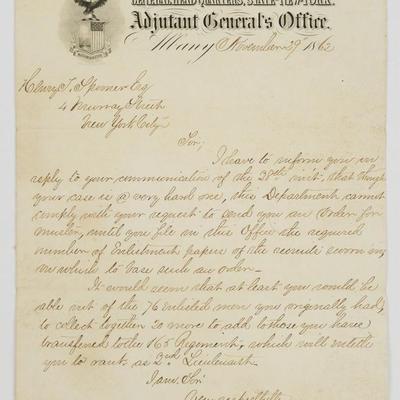 GENERAL HEAD QUARTERS, STATE OF NEW-YORK.
Adjutant General's Office.
Albany November 29th 1862
Henry T. Spooner Esq
4 Murray Street
New York City
Sir;
I have to inform you in
reply to your communication of the 38th inst. that though
your case is a very hard one, this Department cannot
comply with your request to send you an order for
muster, until you file in this Office the required
number of Enlistment papers of the recruits sworn in,
on which to base such an order.
It would seem that at least you would be
able out of the 76 Enlisted men you originally had,
to collect together 20 more to add to those you have
transferred to the 165 Regiment, which will entitle
you to rank as 2nd Lieutenant.
I am Sir
Very respectfully